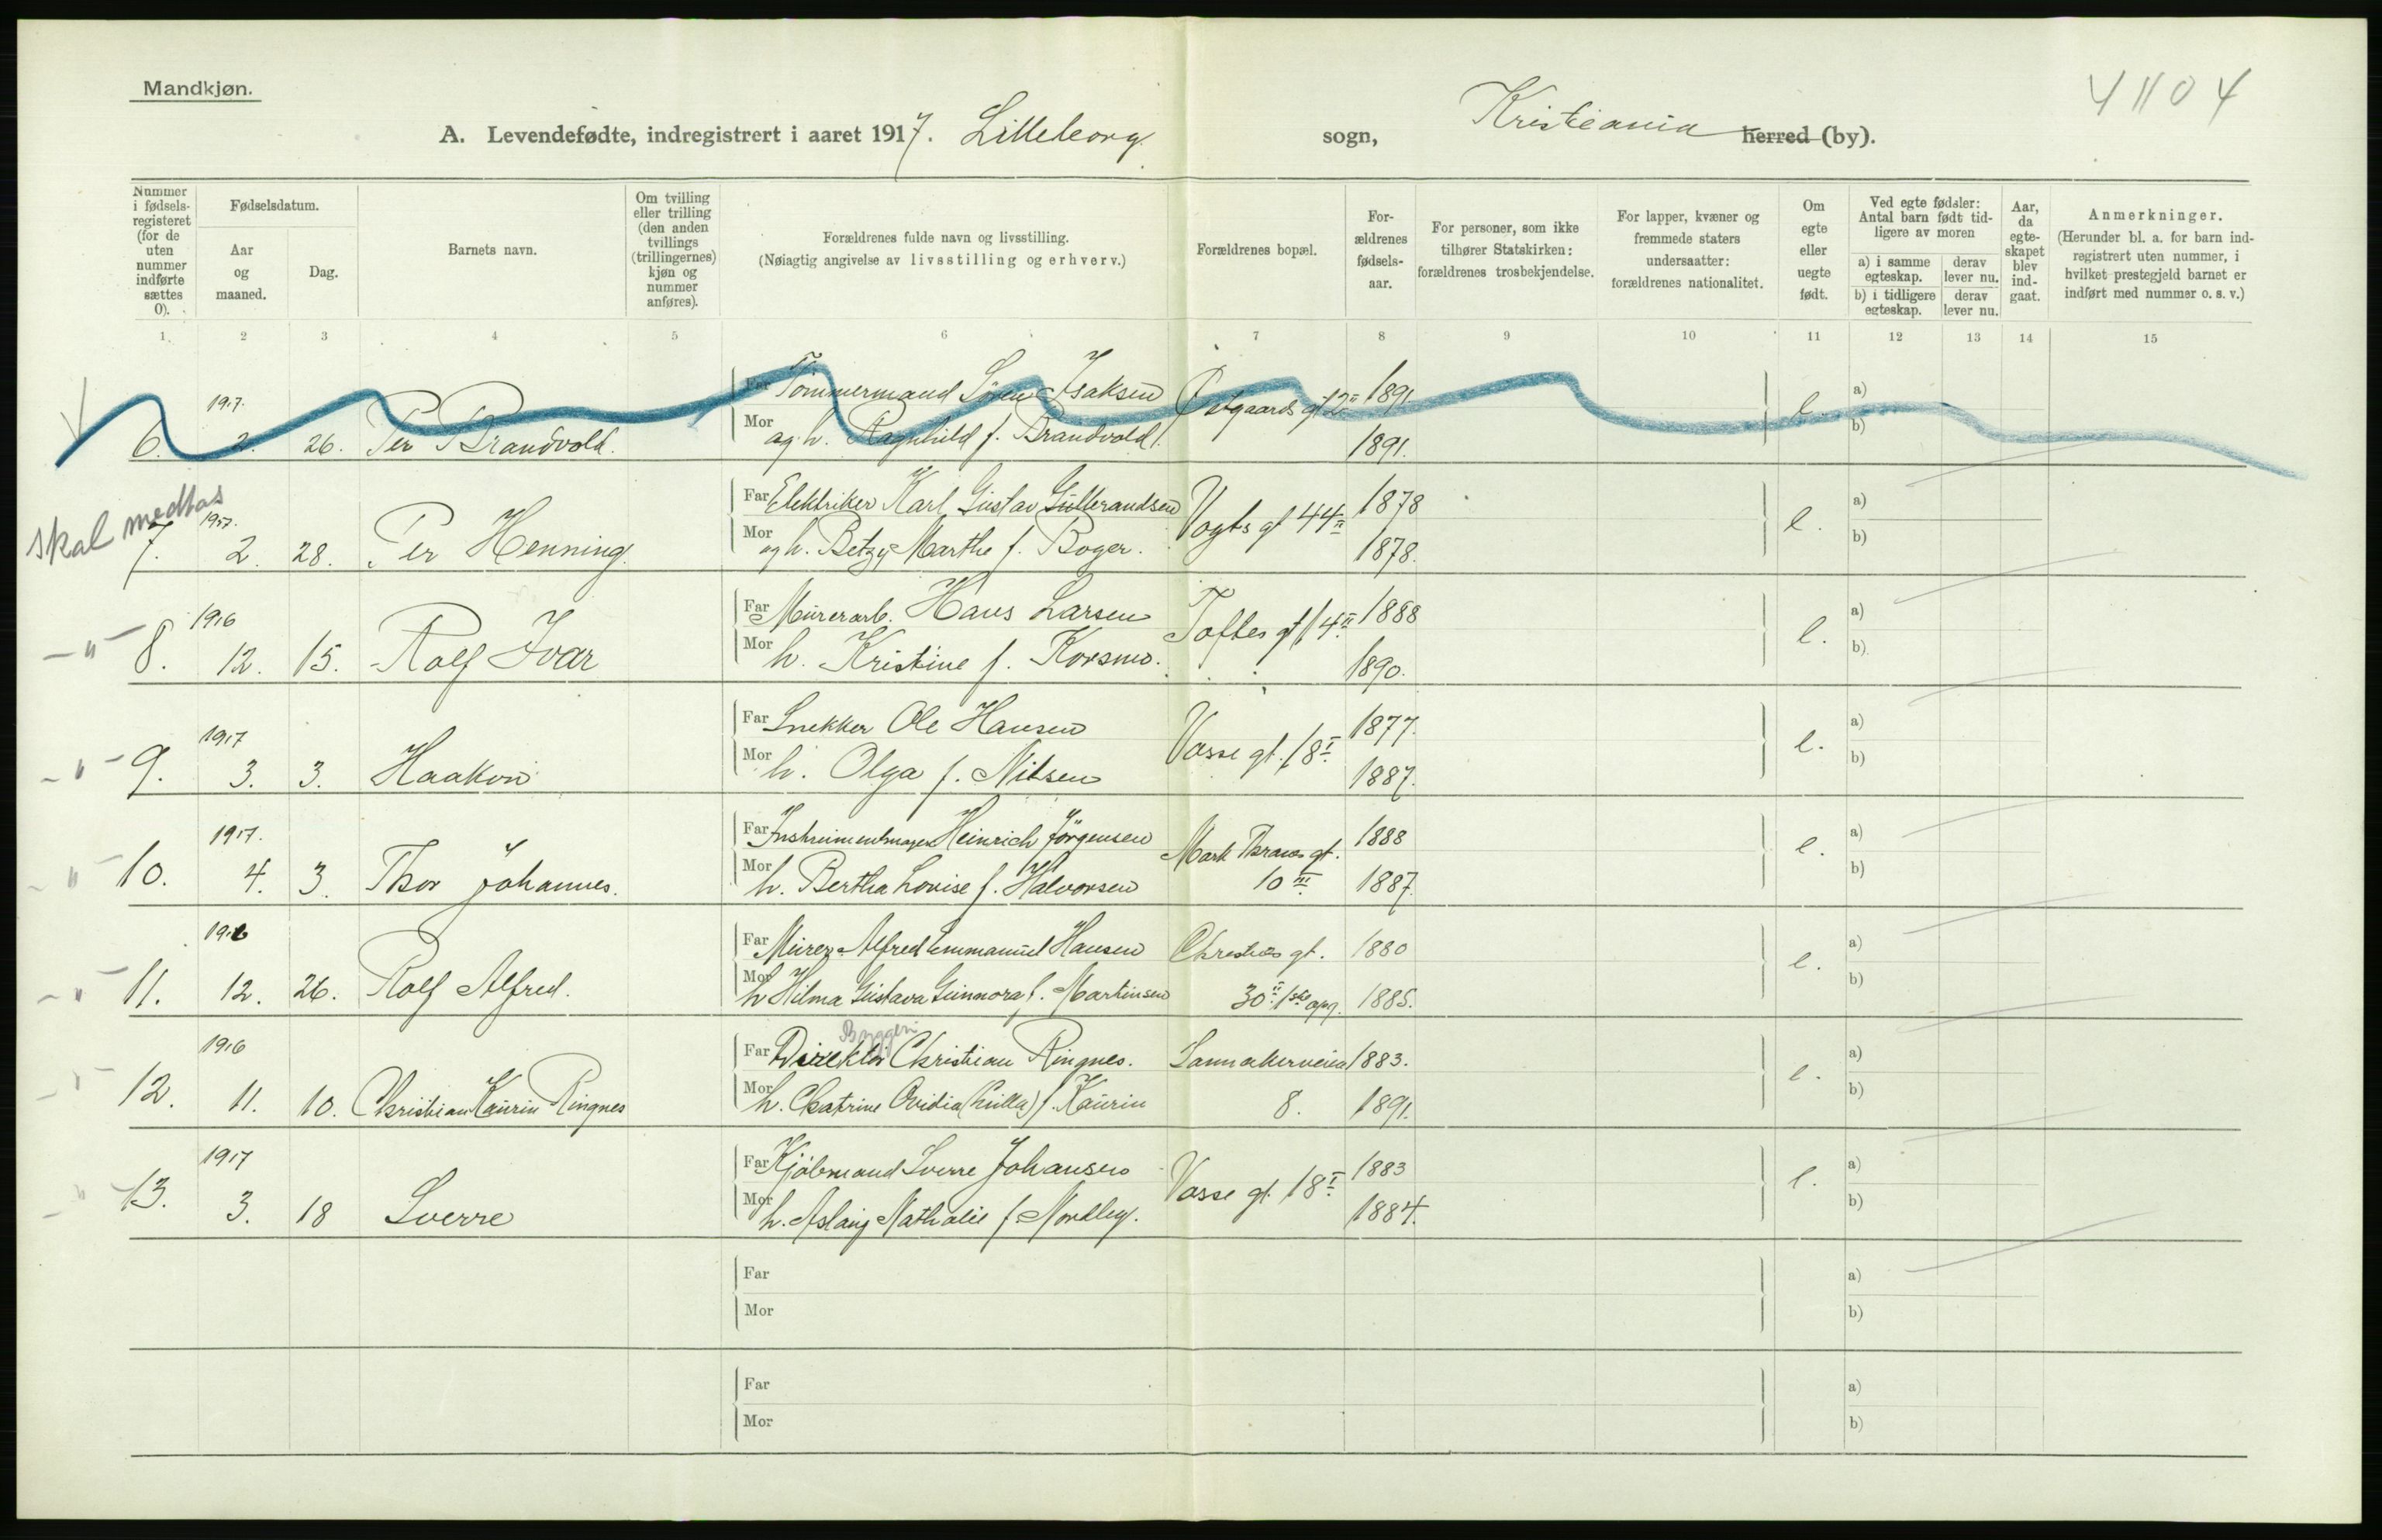 Mandkjøn.
4 1104
A. Levendefødte, indregistrert i aaret 1917. Lilleborg sogn, Kristiania herred (by).
Nummer i fødsels-registeret (for de uten nummer indførte sættes 0).
Fødselsdatum.
Aar og maaned.
Dag.
Barnets navn.
Om tvilling eller trilling (den anden tvillings (trillingernes) kjøn og nummer anføres).
Forældrenes fulde navn og livsstilling.
(Nøiagtig angivelse av livsstilling og erhverv.)
Forældrenes bopæl.
For-ældrenes fødsels-aar.
For personer, som ikke tilhører Statskirken: forældrenes trosbekjendelse.
For lapper, kvæner og fremmede staters undersaatter: forældrenes nationalitet.
Om egte eller uegte født.
Ved egte fødsler: Antal barn født tid-ligere av moren
a) i samme egteskap. derav lever nu.
b) i tidligere egteskap. derav lever nu.
Aar, da egte-skapet blev ind-gaat.
Anmerkninger.
(Herunder bl. a. for barn ind-registrert uten nummer, i hvilket prestegjeld barnet er indført med nummer o. s. v.)
1. 2 3 4 5 6 7 8 9 10 11 12 13 14 15
1917. Far Tømmermand Søren Isaksen 1891 a)
6. 2. 26. Per Brandvold. Mor og h. Ragnhild f. Brandvold. 1891. e. b)
skal medtas
1917. Far Elektriker Karl Gustav Gulbrandsen Vogts gt 44 II 1878 a)
7. 2. 28. Per Henning. Mor og h. Betzy Marthe f. Boger. 1878. e. b)
1916 Far Murerarb. Hans Larsen Toftes gt 14 II 1888 a)
— " — 8. 12. 15. Rolf Ivar Mor h. Kristine f. Korsmo. 1890. e. b)
1917 Far Snekker Ole Hansen Vosse gt. 18 I 1877. a)
— " — 9. 3. 3. Haakon Mor h. Olga f. Nilsen 1887. e. b)
1917. Far Instrumentmager Heinrich Jörgensen Mark Thranes gt. 1888 a)
— " 10. 4. 3. Thor Johannes. Mor h. Bertha Lovise f. Halvorsen 10 III 1887. e. b)
1916 Far Murer Alfred Emmanuel Hansen Chresties gt. 1880 a)
— " — 11. 12. 26. Rolf Alfred. Mor h Hilma Gustava Gunnora f. Martinsen 30 II 1ste opg. 1885. e. b)
Bryggeri
1916 Far Direktör Christian Ringnes. Sannakerveien 1883. a)
— " — 12. 11. 10. Christian Kaurin Ringnes Mor h. Chatrine Ovidia (Lulla) f. Kaurin 8. 1891. e. b)
1917 Far Kjöbmand Sverre Johansen Vosse gt. 18 I 1883 a)
— " — 13. 3. 18 Sverre Mor h. Aslaug Nathalie f. Nordby. 1884. e. b)
Far a)
Mor b)
Far a)
Mor b)